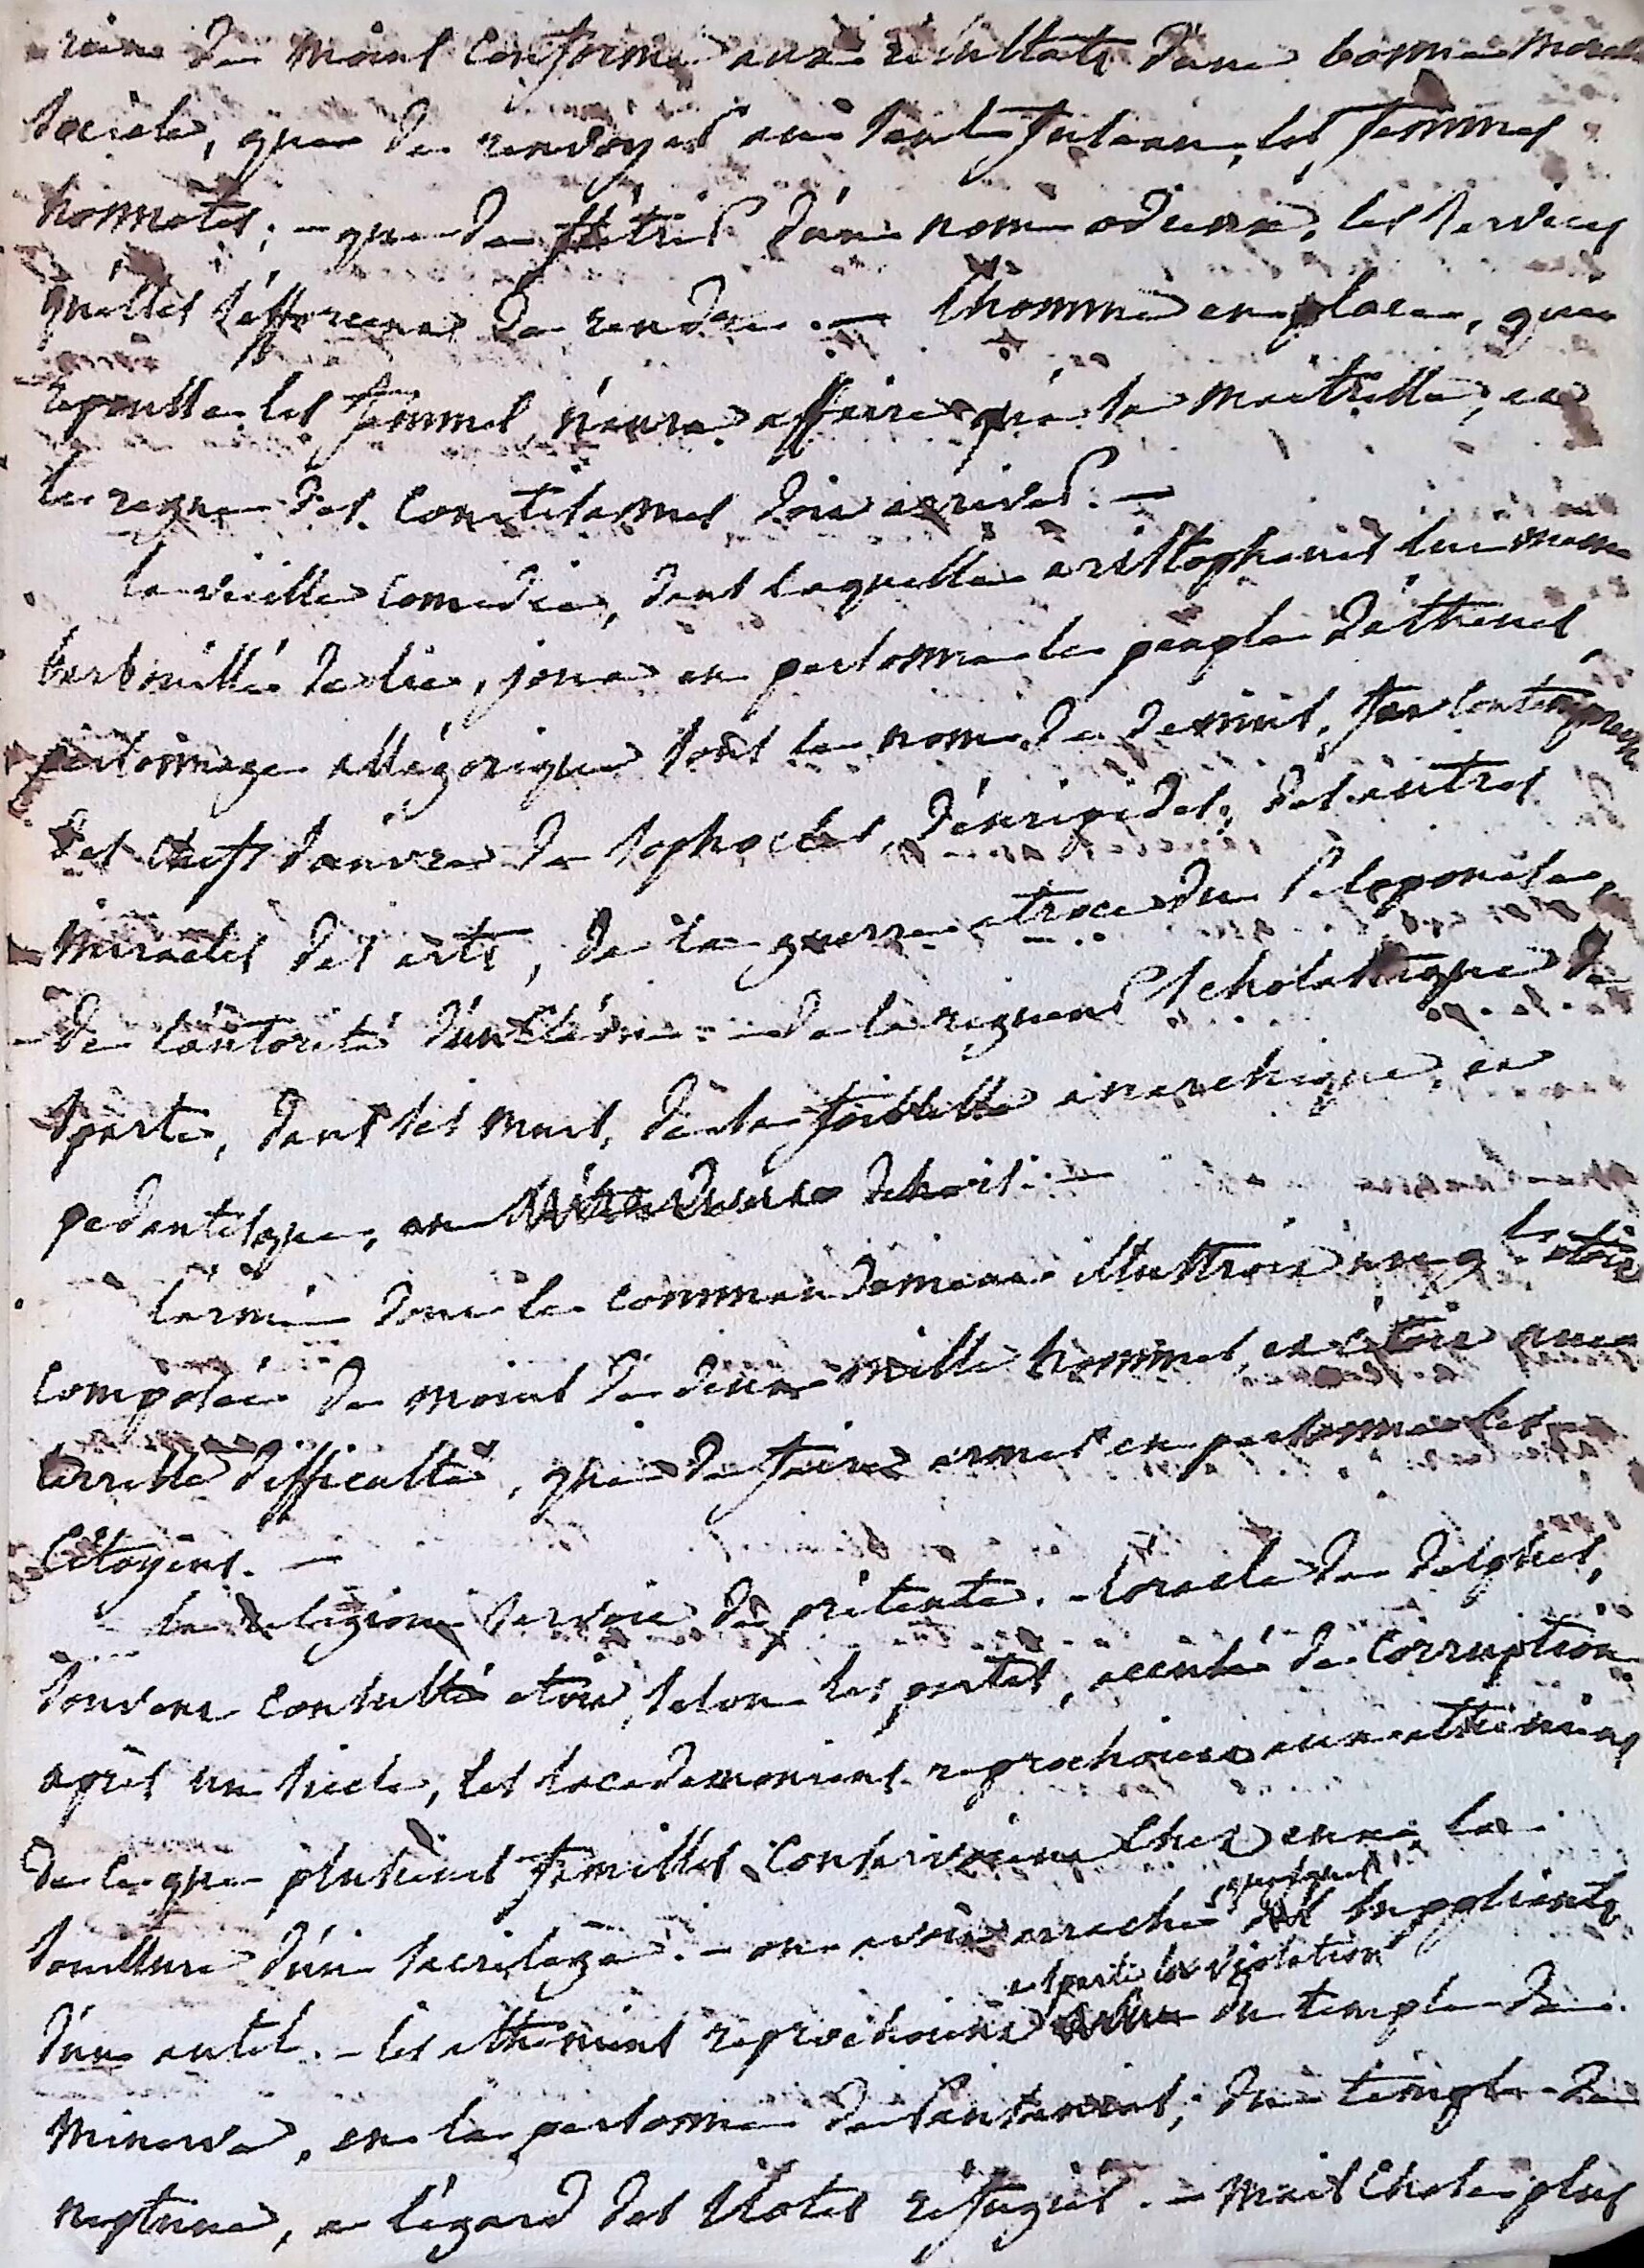 rien de moins conforme aux résultats d'une bonne morale
sociale, que de renvoyer au seul                les femmes
honnetes ; - que de flétrir d'un nom odieux, les services
qu'elles s'efforcent de rendre. - l'homme en place, que
repousse les femmes, n'aura affaire qu'à sa maitresse, et
le regne des courtisannes doit arriver. -
la vieille comedie, dans laquelle aristophanes lui meme
barbouillé de lie, joua en personne le peuple d'athenes
personnage allégorique sous le nom de            fut contemporaine
des chefs d'œuvre de sophocles, d'euripides, des autres
miracles des arts, de la guerre atroce du Peloponese,
- de l'autorité d'un Cléon : - de la rigueur scholastique de
sparte, dans ses murs, de sa foiblesse anarchique, et
pedantesque, en              dehors. -
l'armée dont le commandement illustroit un g.        étoit
composée de moins de deux mille hommes, et c'étoit une
terrible difficulté, que de faire armer en personne les
Citoyens. -
la religion servoit de prétexte. - l'oracle de delphes,
souvent consulté étoit, selon les partis, accusé de corruption
après un siecle, les lacedemoniens reprochoient aux atheniens
de ce que plusieurs familles conservoient chez eux, la
souillure d'un sacrilege. - on avoit arraché quelques suppliants
d'un autel. - les atheniens reprochoient à sparte la violation du temple de
Minerve, en la personne de Pausanias ; du temple de
neptune, à l'égard des Ilotes refugiés. - mais chose plus